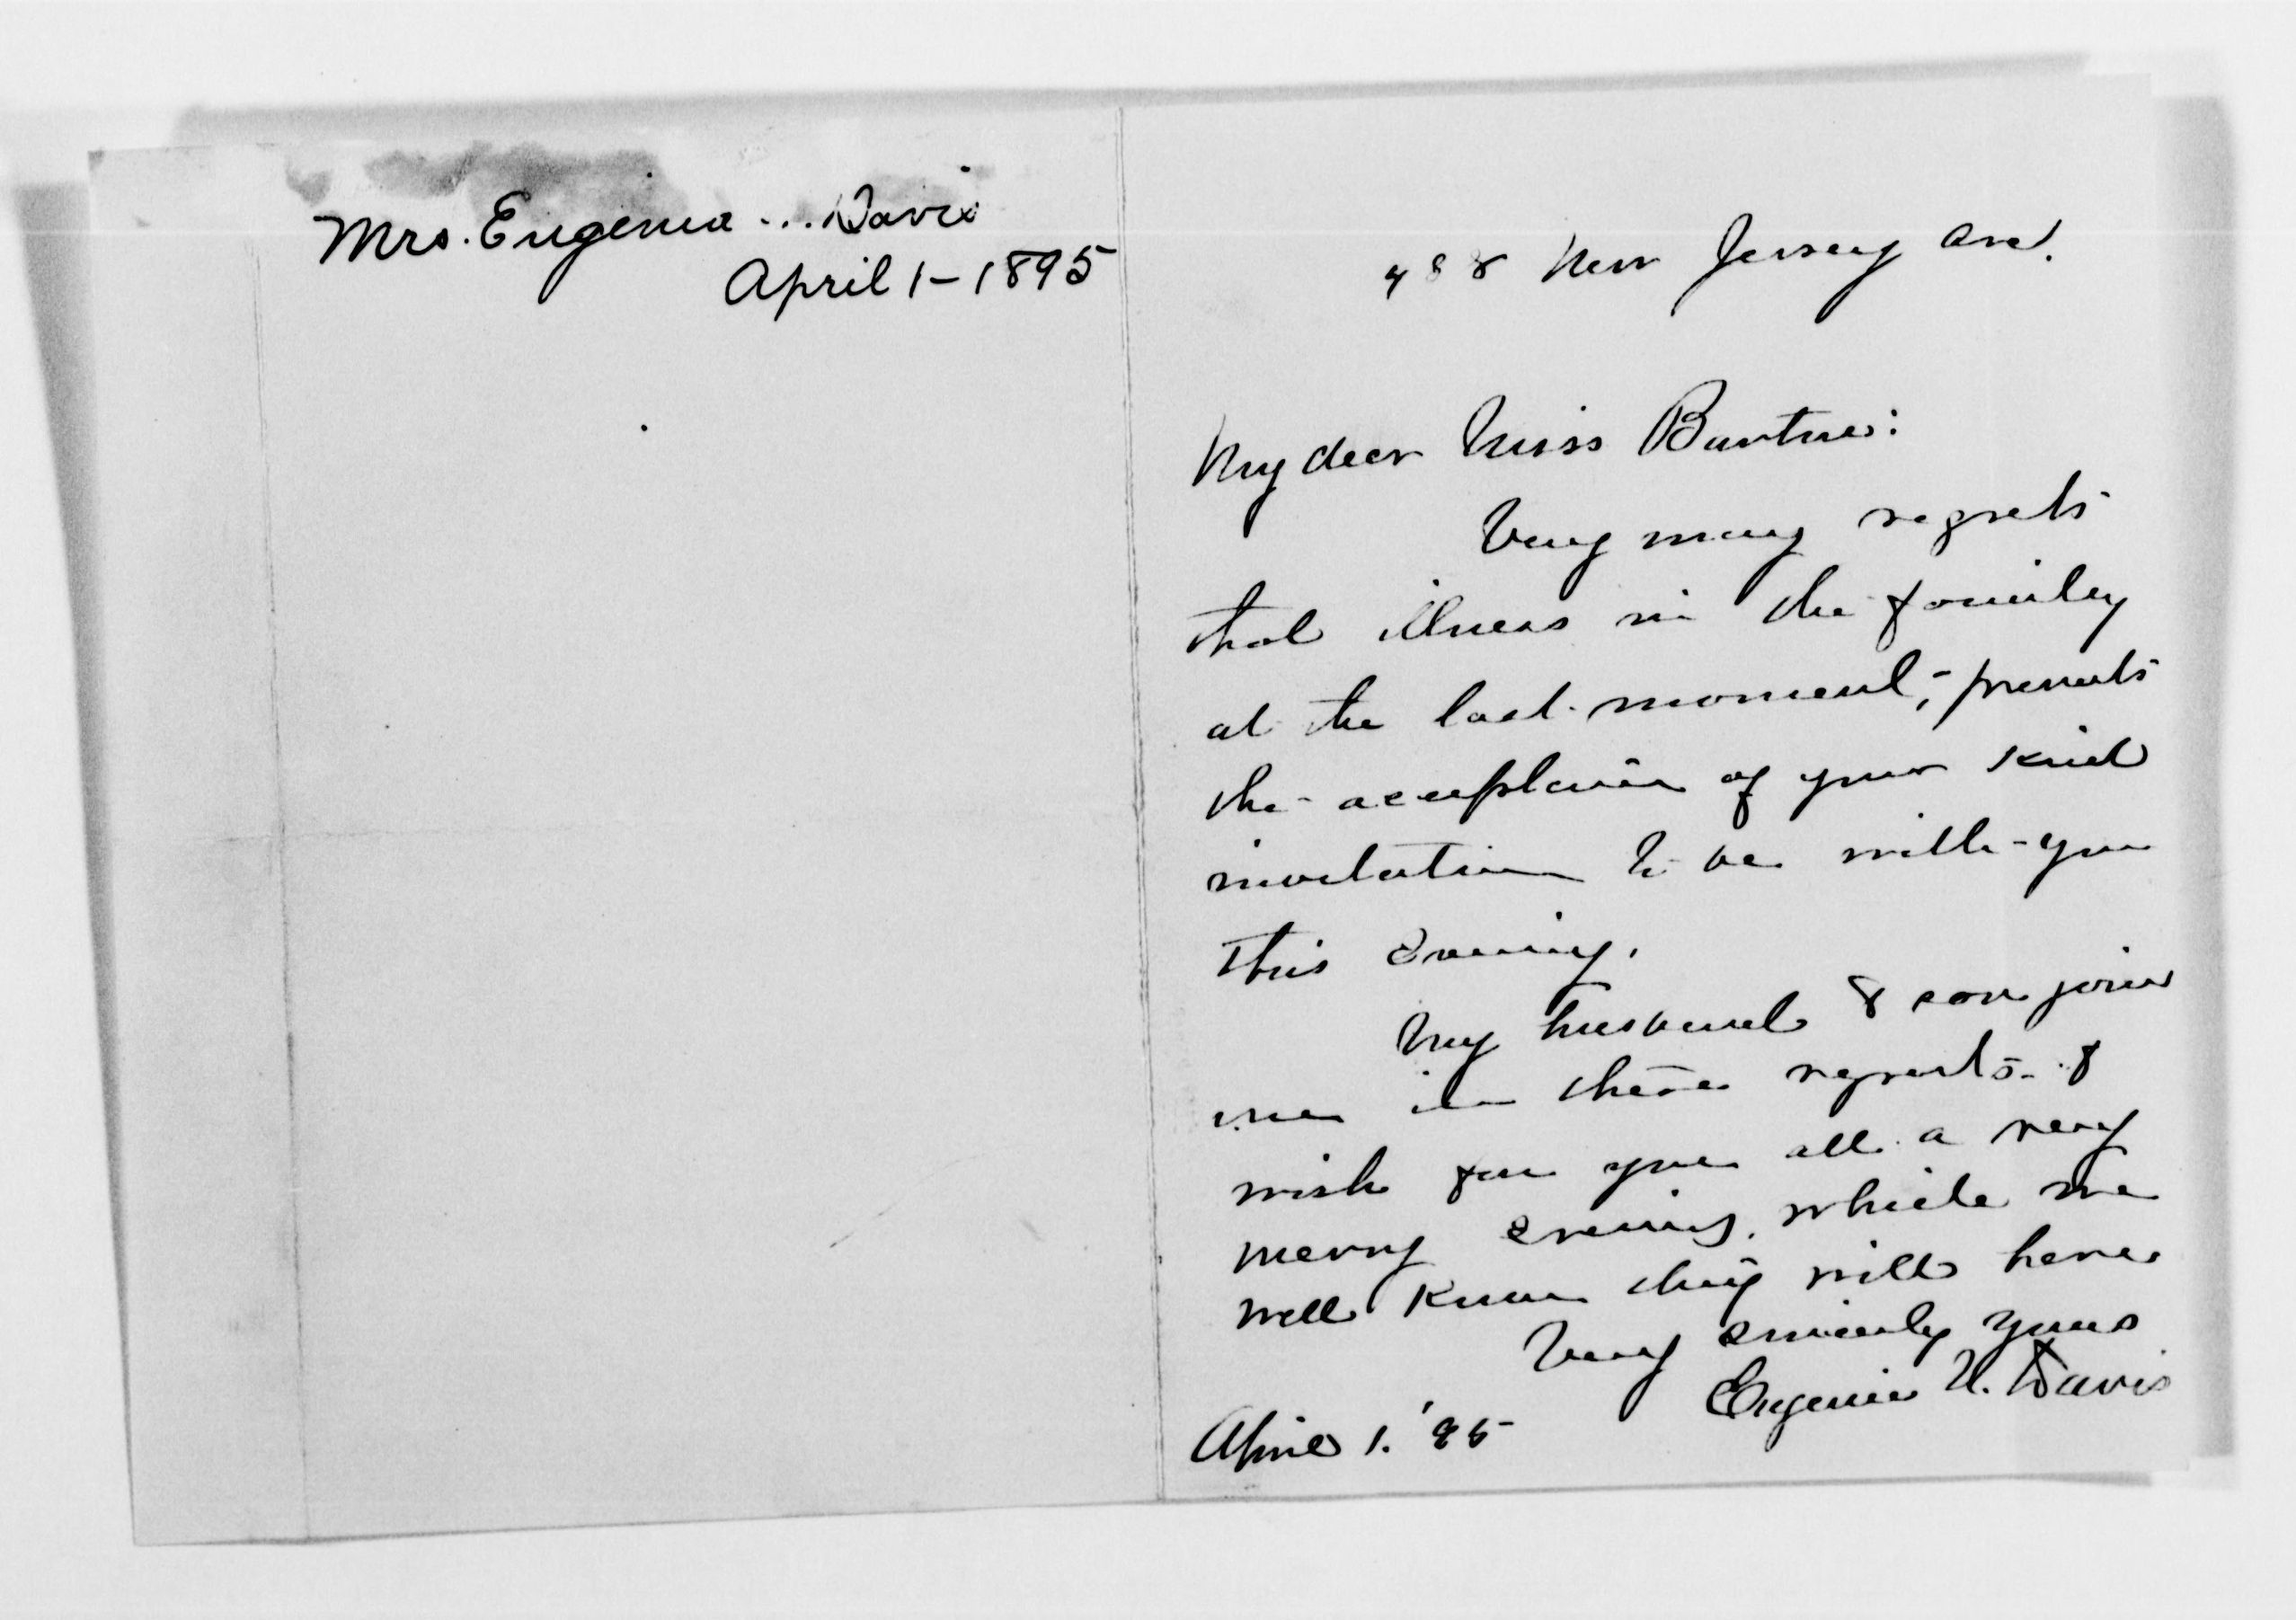 Mrs. Eugenia ... Davis
April 1 - 1895
488 New Jersey Ave.
My dear Miss Barton:
Very many regrets
that illness in the family
at the last moment, prevents
the acceptance of your kind
invitation to be with you
this evening.
My husband & son join
me in these regrets &
wish for you all a very
merry evening, which we
well know they will have.
Very sincerely yours
Eugenia N. Davis
April 1. '95